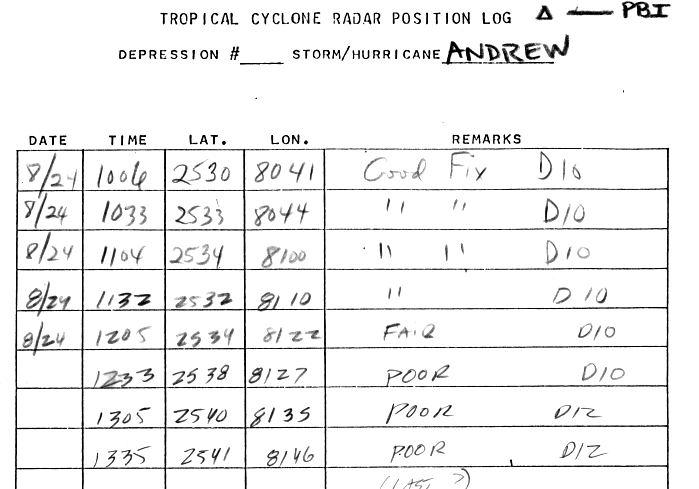 TROPICAL CYCLONE RADAR POSITION LOG Δ — PBI
DEPRESSION #____ STORM/HURRICANE ANDREW
DATE TIME LAT. LON. REMARKS
8/24 1006 2530 8041 Good Fix D10
8/24 1033 2533 8044 " " D10
8/24 1104 2534 8100 " " D10
8/24 1132 2532 8110 " D10
8/24 1205 2534 8122 FAIR D10
1233 2538 8127 POOR D10
1305 2540 8135 POOR D12
1335 2541 8146 POOR D12
(LAST ?)